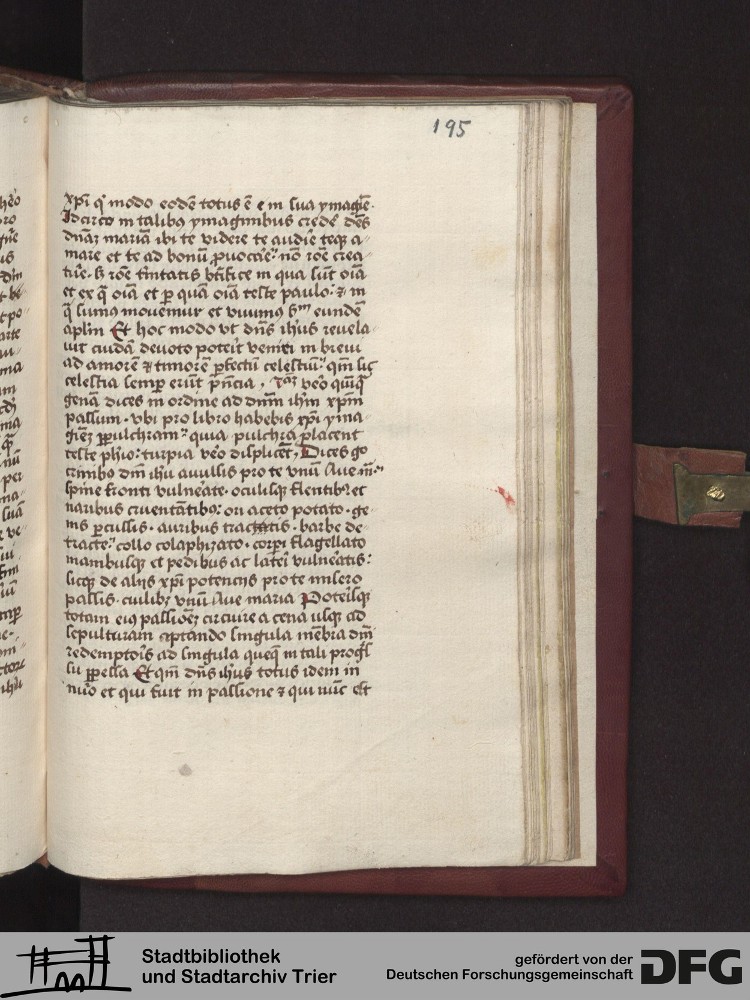 195
xp̄i q̄ modo eodē totus ē e in sua ymagīe
Idcirco in talibꝫ ymaginibus crede dēs
dn̄aꝫ mariā ibi te videre te audire teqꝫ a-
mare et te ad bonū ꝓuocare nō rōe crea
ture sꝫ rōe t̄nitatis bn̄fice in qua sūt oīa
et ex q̄ oīa et ꝑ quā oīa teste paulo: ⁊ in
q̄ sumꝰ mouemur et viuimꝰ sm̄ eundē
apl̄m Et hoc modo vt dn̄s ih̄us reuela-
uit cuidā deuoto poterit venire in breui
ad amorē ⁊ timorē ꝑfectū celestiū qm̄ sic
celestia semper erūt p̄n̄cia,
genā dices in ordine ad dn̄m ih̄m xp̄m
passum. vbi pro libro habebis xp̄i yma
gīeꝫ ꝑpulchram quia pulchra placent
teste ph̄o: turpia v̄o displicēt, Dices go
crinibꝰ dn̄i ih̄u auulsis pro te vnū Aue m̄
spine fronti vulnerate. oculisqꝫ flentibꝰ et
naribus cruentatibꝰ: ori aceto potato. ge
nis ꝑcussis. auribus tractatis. barbe de-
tracte collo colaphizato. corpi flagellato
manibusqꝫ et pedibus ac lateri vulneratis:
sicqꝫ de alijs xp̄i potencijs pro te misero
passis. cuilibꝫ vnū Aue maria Poterisqꝫ
totam eiꝰ passionē circuire a cena usqꝫ ad
sepulturam aptando singula mēbra dn̄i
redemptoris ad singula queqꝫ in tali
su ꝑpessa Et qm̄ dn̄s ih̄us totus idem in
nūo et qui fuit in passione ⁊ qui nūc est
Stadtbibliothek
und Stadtarchiv Trier
gefördert von der
Deutschen Forschungsgemeinschaft
DFG